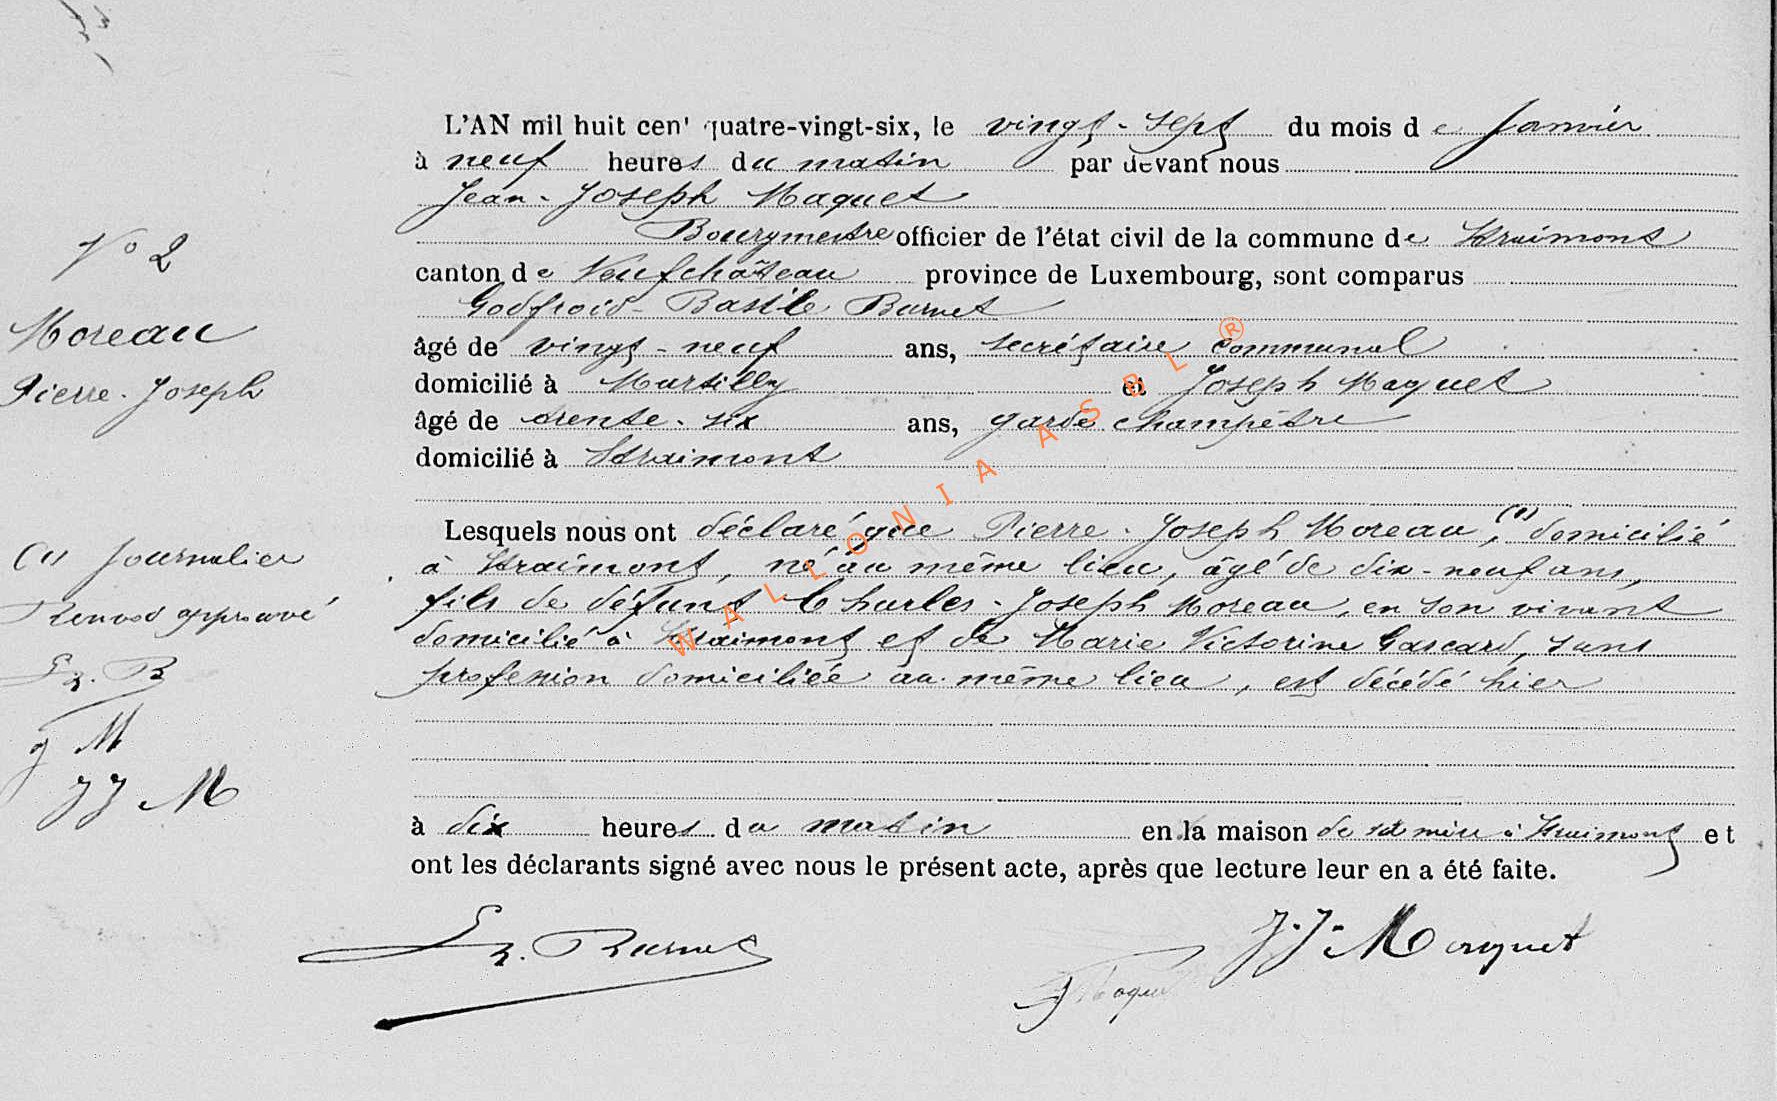 L'AN mil huit cen' quatre-vingt-six, le vingt-sept du mois de Janvier
à neuf heures du matin par devant nous
Jean-Joseph Maquet
Bourgmestre officier de l'état civil de la commune de Straimont
canton de Neufchâteau province de Luxembourg, sont comparus
Godfroid-Basile Burnet
âgé de vingt-neuf ans, secrétaire communal
domicilié à Martilly et Joseph Maquet
âgé de trente-six ans, garde champêtre
domicilié à Straimont
Lesquels nous ont déclaré que Pierre-Joseph Moreau, (1) domicilié
à Straimont, né au même lieu, âgé de dix-neuf ans,
fils de défunt Charles-Joseph Moreau, en son vivant
domicilié à Straimont et de Marie Victorine Gascard, sans
profession domiciliée au même lieu, est décédé hier
à dix heures du matin en la maison de sa mère à Straimont et
ont les déclarants signé avec nous le présent acte, après que lecture leur en a été faite.
B. Burnet
J. J. Maquet
J Maquet
No 2
Moreau
Pierre-Joseph
(1) Journalier
Renvoi approuvé
B
J M
JJ M
WALLONIA ASBL ®